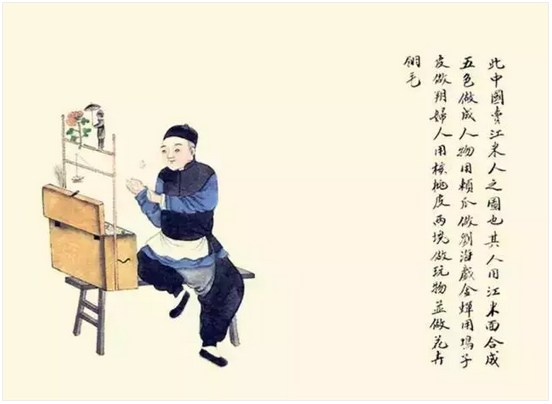 此中國賣江米人之圖也其人用江米面合成
五色做成人物用賴瓜做劉海戲金蟬用子
皮做翔婦人用核桃皮兩塊做玩物並做花卉
翎毛